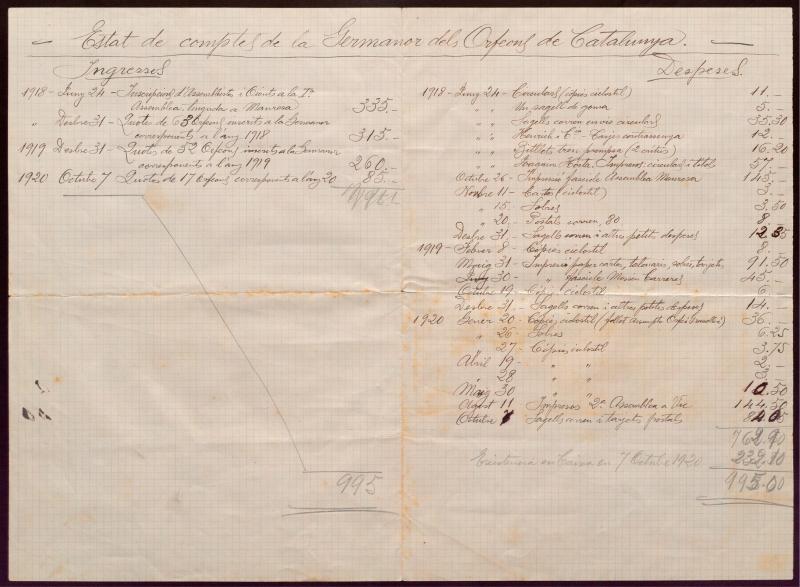 Estat de comptes de la Germanor dels Orfeons de Catalunya.
Ingresses
1918 - Juny 24 - Inscripcions d'Assembleistes i Oients a la Iª
Assemblea tinguda a Manresa 335.-
" Desbre 31 - Quotes de 63 Orfeons inscrits a la Germanor
corresponents a l'any 1918 315.-
1919 Desbre 31 - Quotes de 52 Orfeons inscrits a la Germanor
corresponents a l'any 1919 260.-
1920 Octubre 7 Quotes de 17 Orfeons corresponents a l'any 20 85.-
995
Despeses.
1918 - Juny 24 - Circulars (còpies ciclostil) 11.-
" " Un sagell de goma 5.-
" " Sagells correu envio circulars 35.30
" " Henrich i Cª - Caixes 12.-
" " Bitllets tren (2 cartes) 16.20
" " Joaquim Horta, Impresos circulars i titols 57.-
Octubre 26 - Impresió fascicle Assemblea Manresa 145.-
Novbre 11 - Cartes (ciclostil) 3.-
" 15 - Sobres 3.50
" 20 - Postals correu, 80 8.-
Desbre 31 - Sagells correu i altres petits despeses 12.35
1919 - Febrer 8 - Còpies ciclostil 8.-
Maig 31 - Impresió paper cartes, talonaris, sobres, targets 91.50
Juny 30 - " fascicle Mossen Carreras 45.-
Octubre 19 - Còpies ciclostil 6.-
Desbre 31 - Sagells correu i altres petites despeses 14.-
1920 Gener 20 - Còpies ciclostil (fullet assumpte Orfeó Granollers) 36.-
" 26 - Sobres 6.25
" 27 - Còpies ciclostil 3.75
Abril 19 - " " 2.-
" 28 " " 3.-
Maig 30 " " 10.50
Agost 11 Impresos 2ª Assemblea a Vic 144.50
Octubre 7 Sagells correu i targets postals
762.90
Existencia en Caixa en 7 Octubre 1920 232.10
995.00